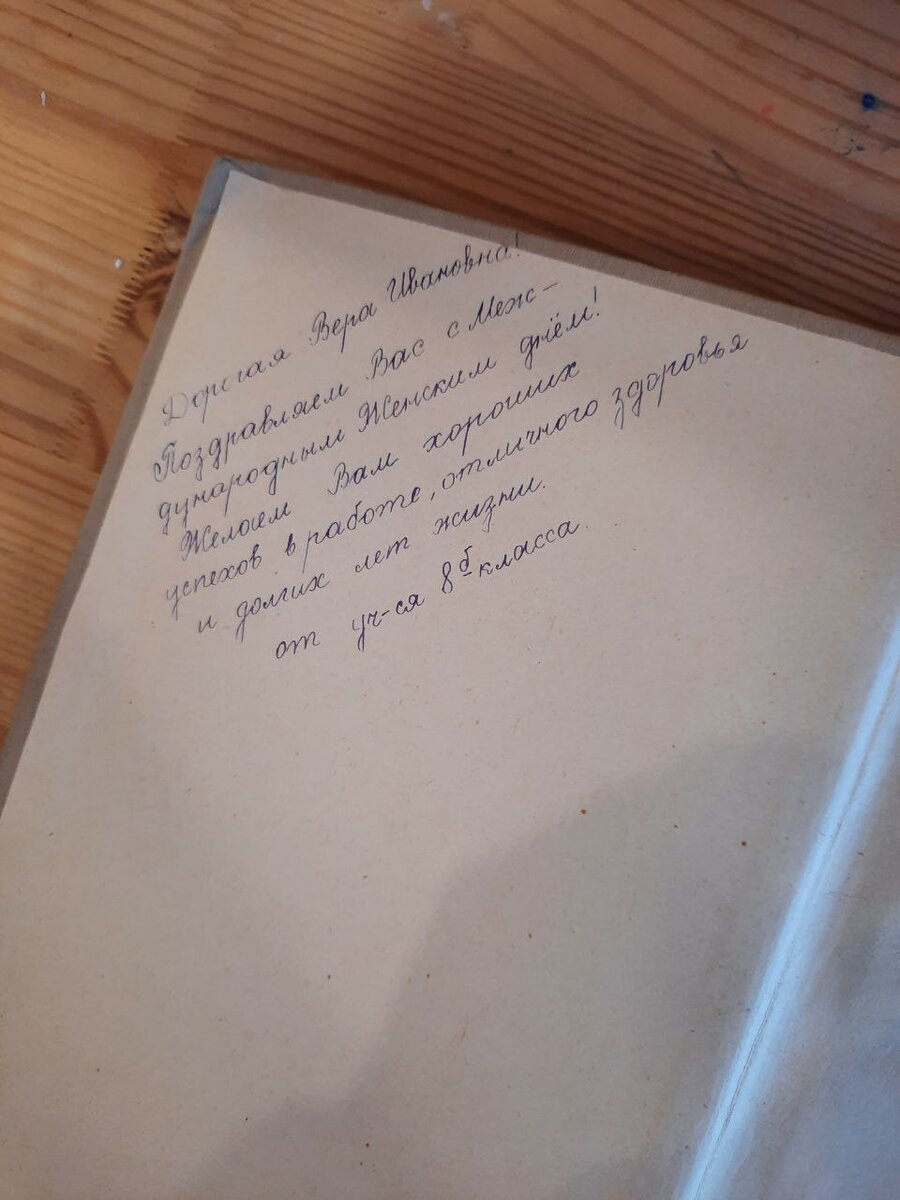 Дорогая Вера Ивановна!
Поздравляем Вас с Меж-
дународным Женским днём!
Желаем Вам хороших
успехов в работе, отличного здоровья
и долгих лет жизни.
от уч-ся 8б класса.